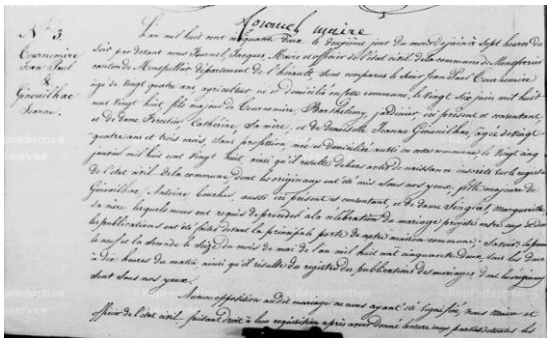 maire
N° 3
Cournemire
Jean Paul
&
Ginouilhac
Jeanne.
L'an mil huit cent cinquante deux le deuxième jour du mois de juin à sept heures du
soir par devant nous Jacques, Maire et officier de l'état civil de la commune de Montferrier
canton de Montpellier département de l'hérault, sont comparus le Sieur Jean Paul Cournemire
âgé de vingt quatre ans, agriculteur né et domicilié en cette commune, le vingt six juin mil huit
cent vingt huit, fils majeur de Cournemire, Barthélemy, jardinier, ici présent et consentant,
et de dame Catherine, sa mère, et de demoiselle Jeanne Ginouilhac, âgée de vingt
quatre ans et trois mois, sans profession, née et domiciliée aussi en cette commune, le vingt cinq
janvier mil huit cent vingt huit, ainsi qu'il résulte de leurs actes de naissance inscrits sur le registre
de l'état civil de la commune dont les originaux ont été mis sous nos yeux, fille majeure de
Ginouilhac, Antoine aussi ici présent et consentant, et de dame Marguerite
sa mère, lesquels nous ont requis de procéder à la célébration du mariage projeté entre eux, et dont
les publications ont été faites devant la principale porte de notre maison commune; savoir: la première
le neuf et la seconde le seize du mois de mai de l'an mil huit cent cinquante deux, tous les deux
à dix heures du matin, ainsi qu'il résulte du registre des publications des mariages dont les originaux
sont sous nos yeux.
Aucune opposition au dit mariage ne nous ayant été signifiée, nous maire et
officier de l'état civil, faisant droit à leur réquisition après avoir donné lecture aux parties de toutes les